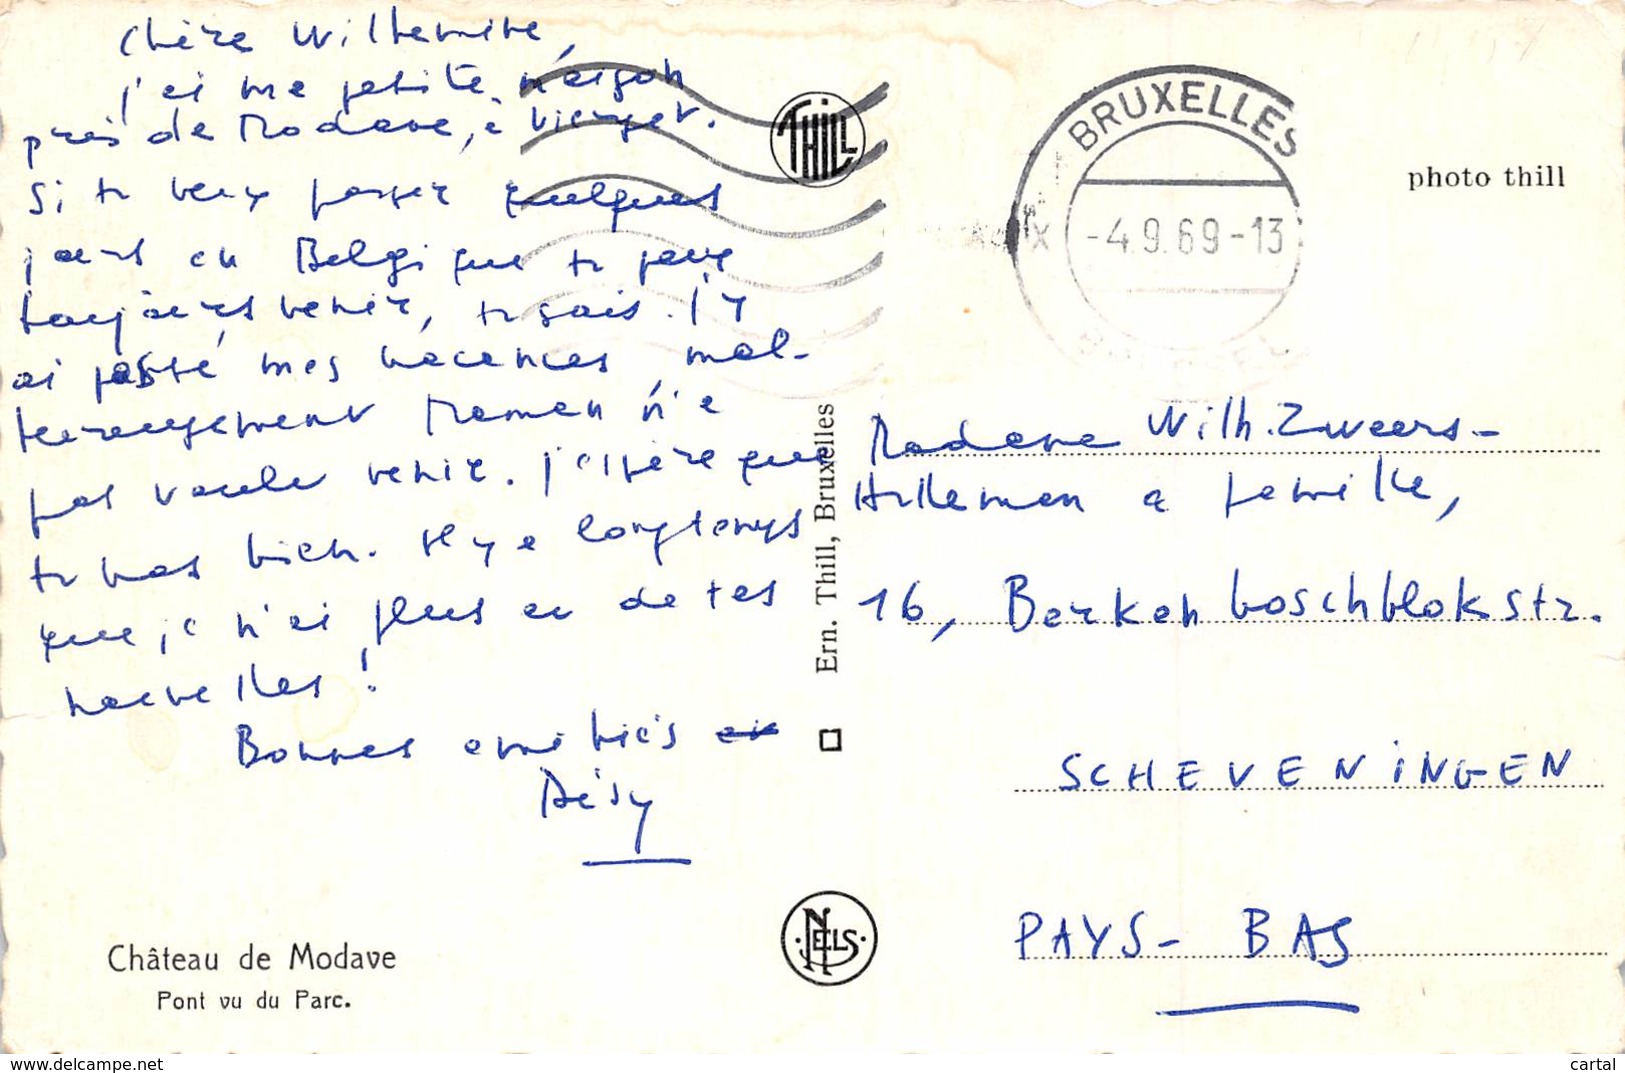 Chère Wilhemine,
j'ai ma petite maison
près de Modave, à Vierset.
Si tu veux passer quelques
jours en Belgique tu peux
toujours venir, tu sais. J'y
ai passé mes vacances mal-
heureusement Maman n'a
pas voulu venir. J'espère que
tu vas bien. Il y a longtemps
que je n'ai plus eu de tes
nouvelles!
Bonnes amitiés
Désy
Château de Modave
Pont vu du Parc.
THILL
Ern. Thill, Bruxelles
NELS
BRUXELLES
-4.9.69-13
BRUSSEL
photo thill
Madame Wilh. Zweers-
Hulleman a famille,
16, Berkenboschblokstr.
SCHEVENINGEN
PAYS-BAS
https://www.delcampe.net
cartal